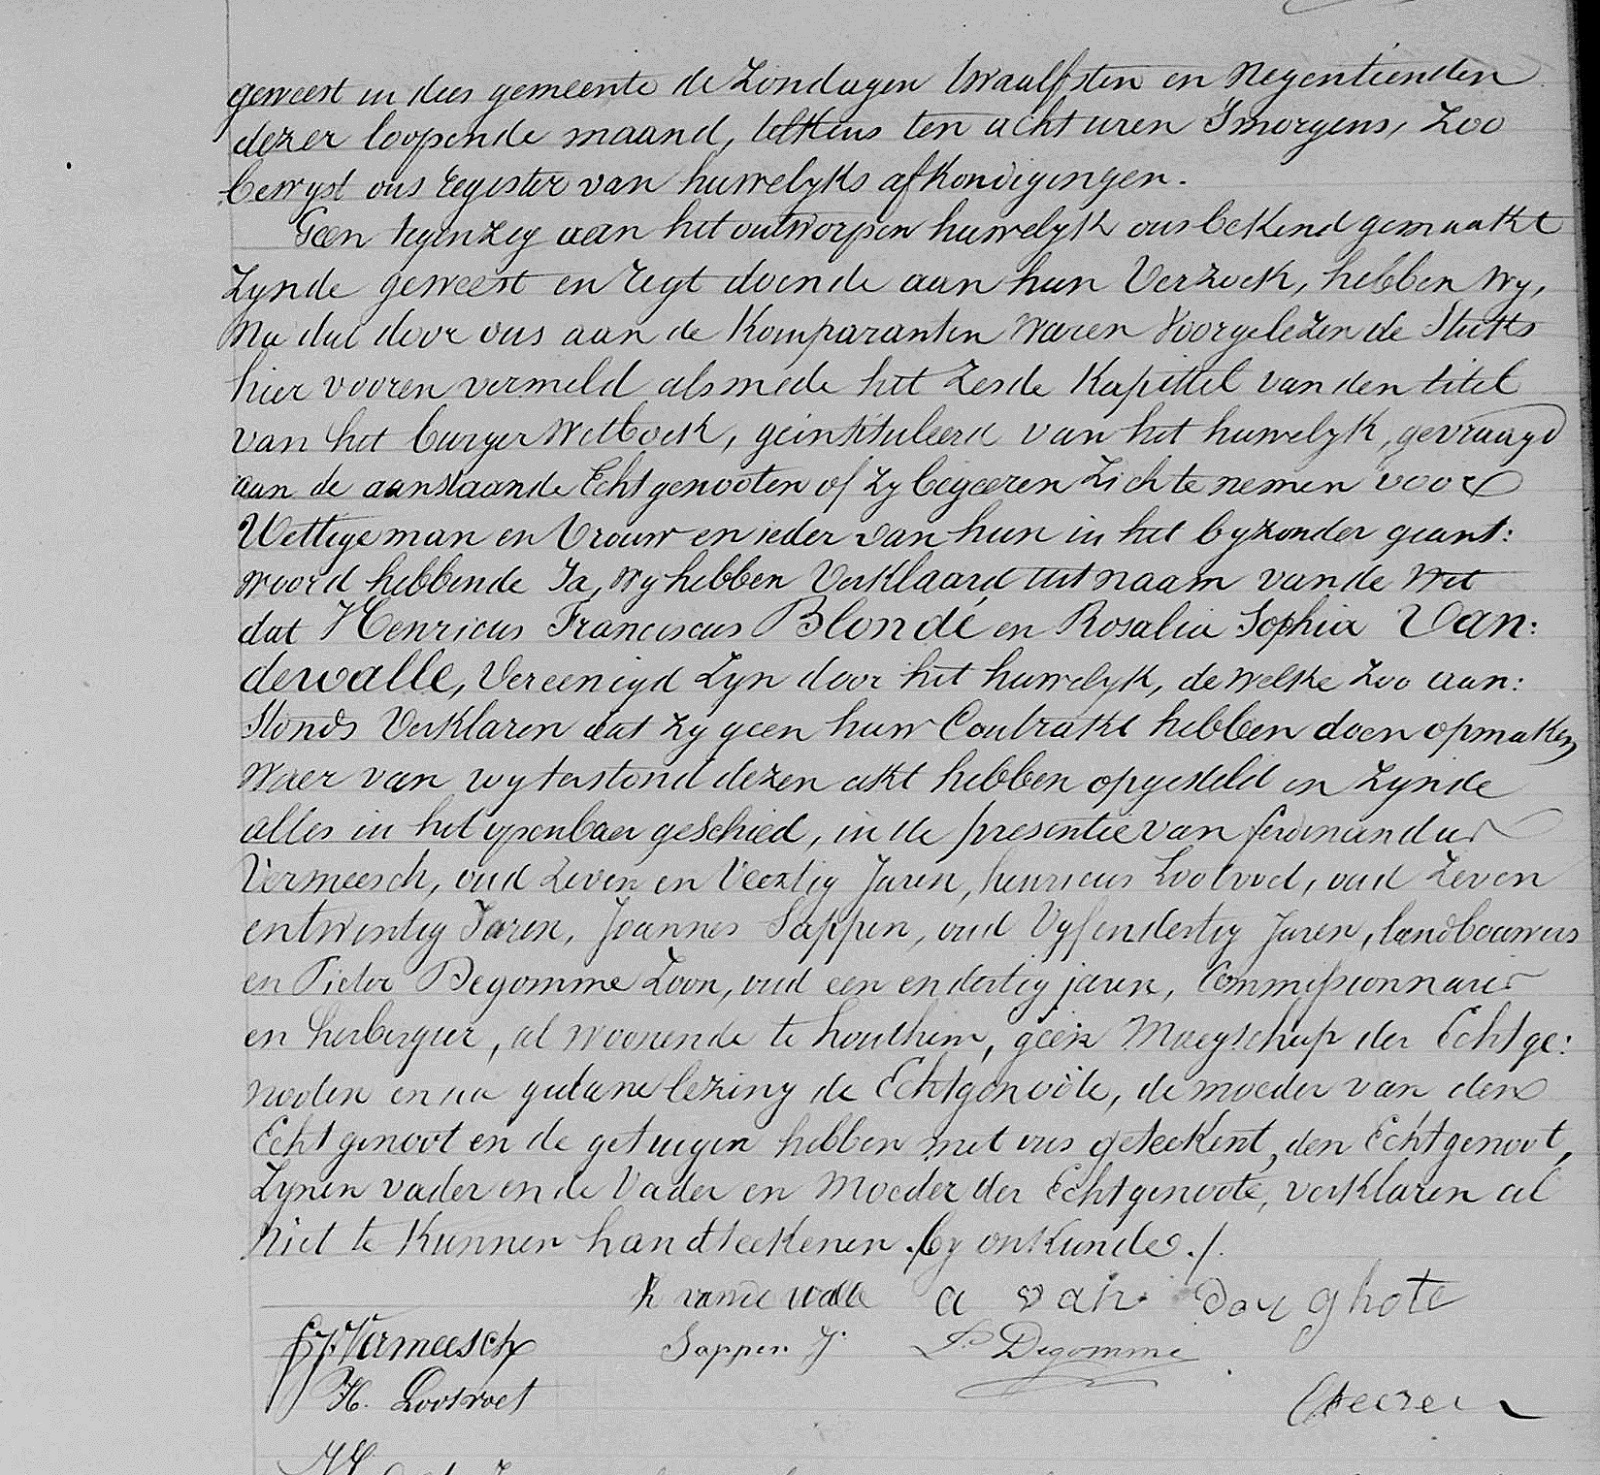 geweest in dees gemeente de Zondagen twaalfsten en Negentienden
dezer loopende maand, telkens ten acht uren Smorgens, Zoo
bewyst ons register van huwelyks afkondigingen.
Geen tegenzeg aen het ontworpen huwelyk ons bekend gemaakt
Zynde geweest en regt doende aan hun Verzoek, hebben Wy,
Na dat door ons aan de Komparanten Waren Voorgelezen de Stukks
hier vooren vermeld alsmede het Zesde Kapittel van den titel
van het burger Wetboek, geintituleerd van het huwelyk, gevraagd
aan de aanstaande Echtgenooten of Zy begeeren Zich te nemen voor
Wettige man en Vrouw en ieder van hun in het byzonder geant:
woord hebbende Ja, Wy hebben Verklaard uit naam van de Wet
dat Henricus Franciscus Blondé en Rosalia Sophia Van:
dewalle, Vereenigd Zyn door het huwelyk, de welke Zoo aan:
Stonds Verklaren dat Zy geen huw Contrakt hebben doen opmaken
Waer van wy terstond dezen akt hebben opgesteld en Zynde
alles in het openbaer geschied, in de presentie van ferdinandus
Vermeesch, oud Zeven en Veertig Jaren, henricus Lootvoet, oud Zeven
en twintig Jaren, Joannes Sappen, oud Vyf en dertig Jaren, landbouwers
en Pieter Degomme Zoon, oud een en dertig jaren, Commissionnaris
en herbergier, al woonende te houthem, geen Maegschap der Echtge:
nooten en na gedane lezing de Echtgenoöte, de moeder van den
Echtgenoot en de getuigen hebben met ons geteekent, den Echtgenoot,
Zynen vader en de Vader en Moeder der Echtgenoote, verklaren al
Niet te Kunnen handteekenen by onkunde./.
R vande walle a van Dor ghote
F J Vermeesch Sappen J. P. Degomme
H. Lootvoet